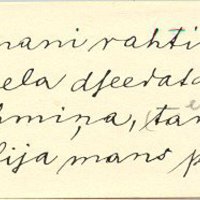 mani rahti
ela dseedata
hmiņa, ta
lija mans p